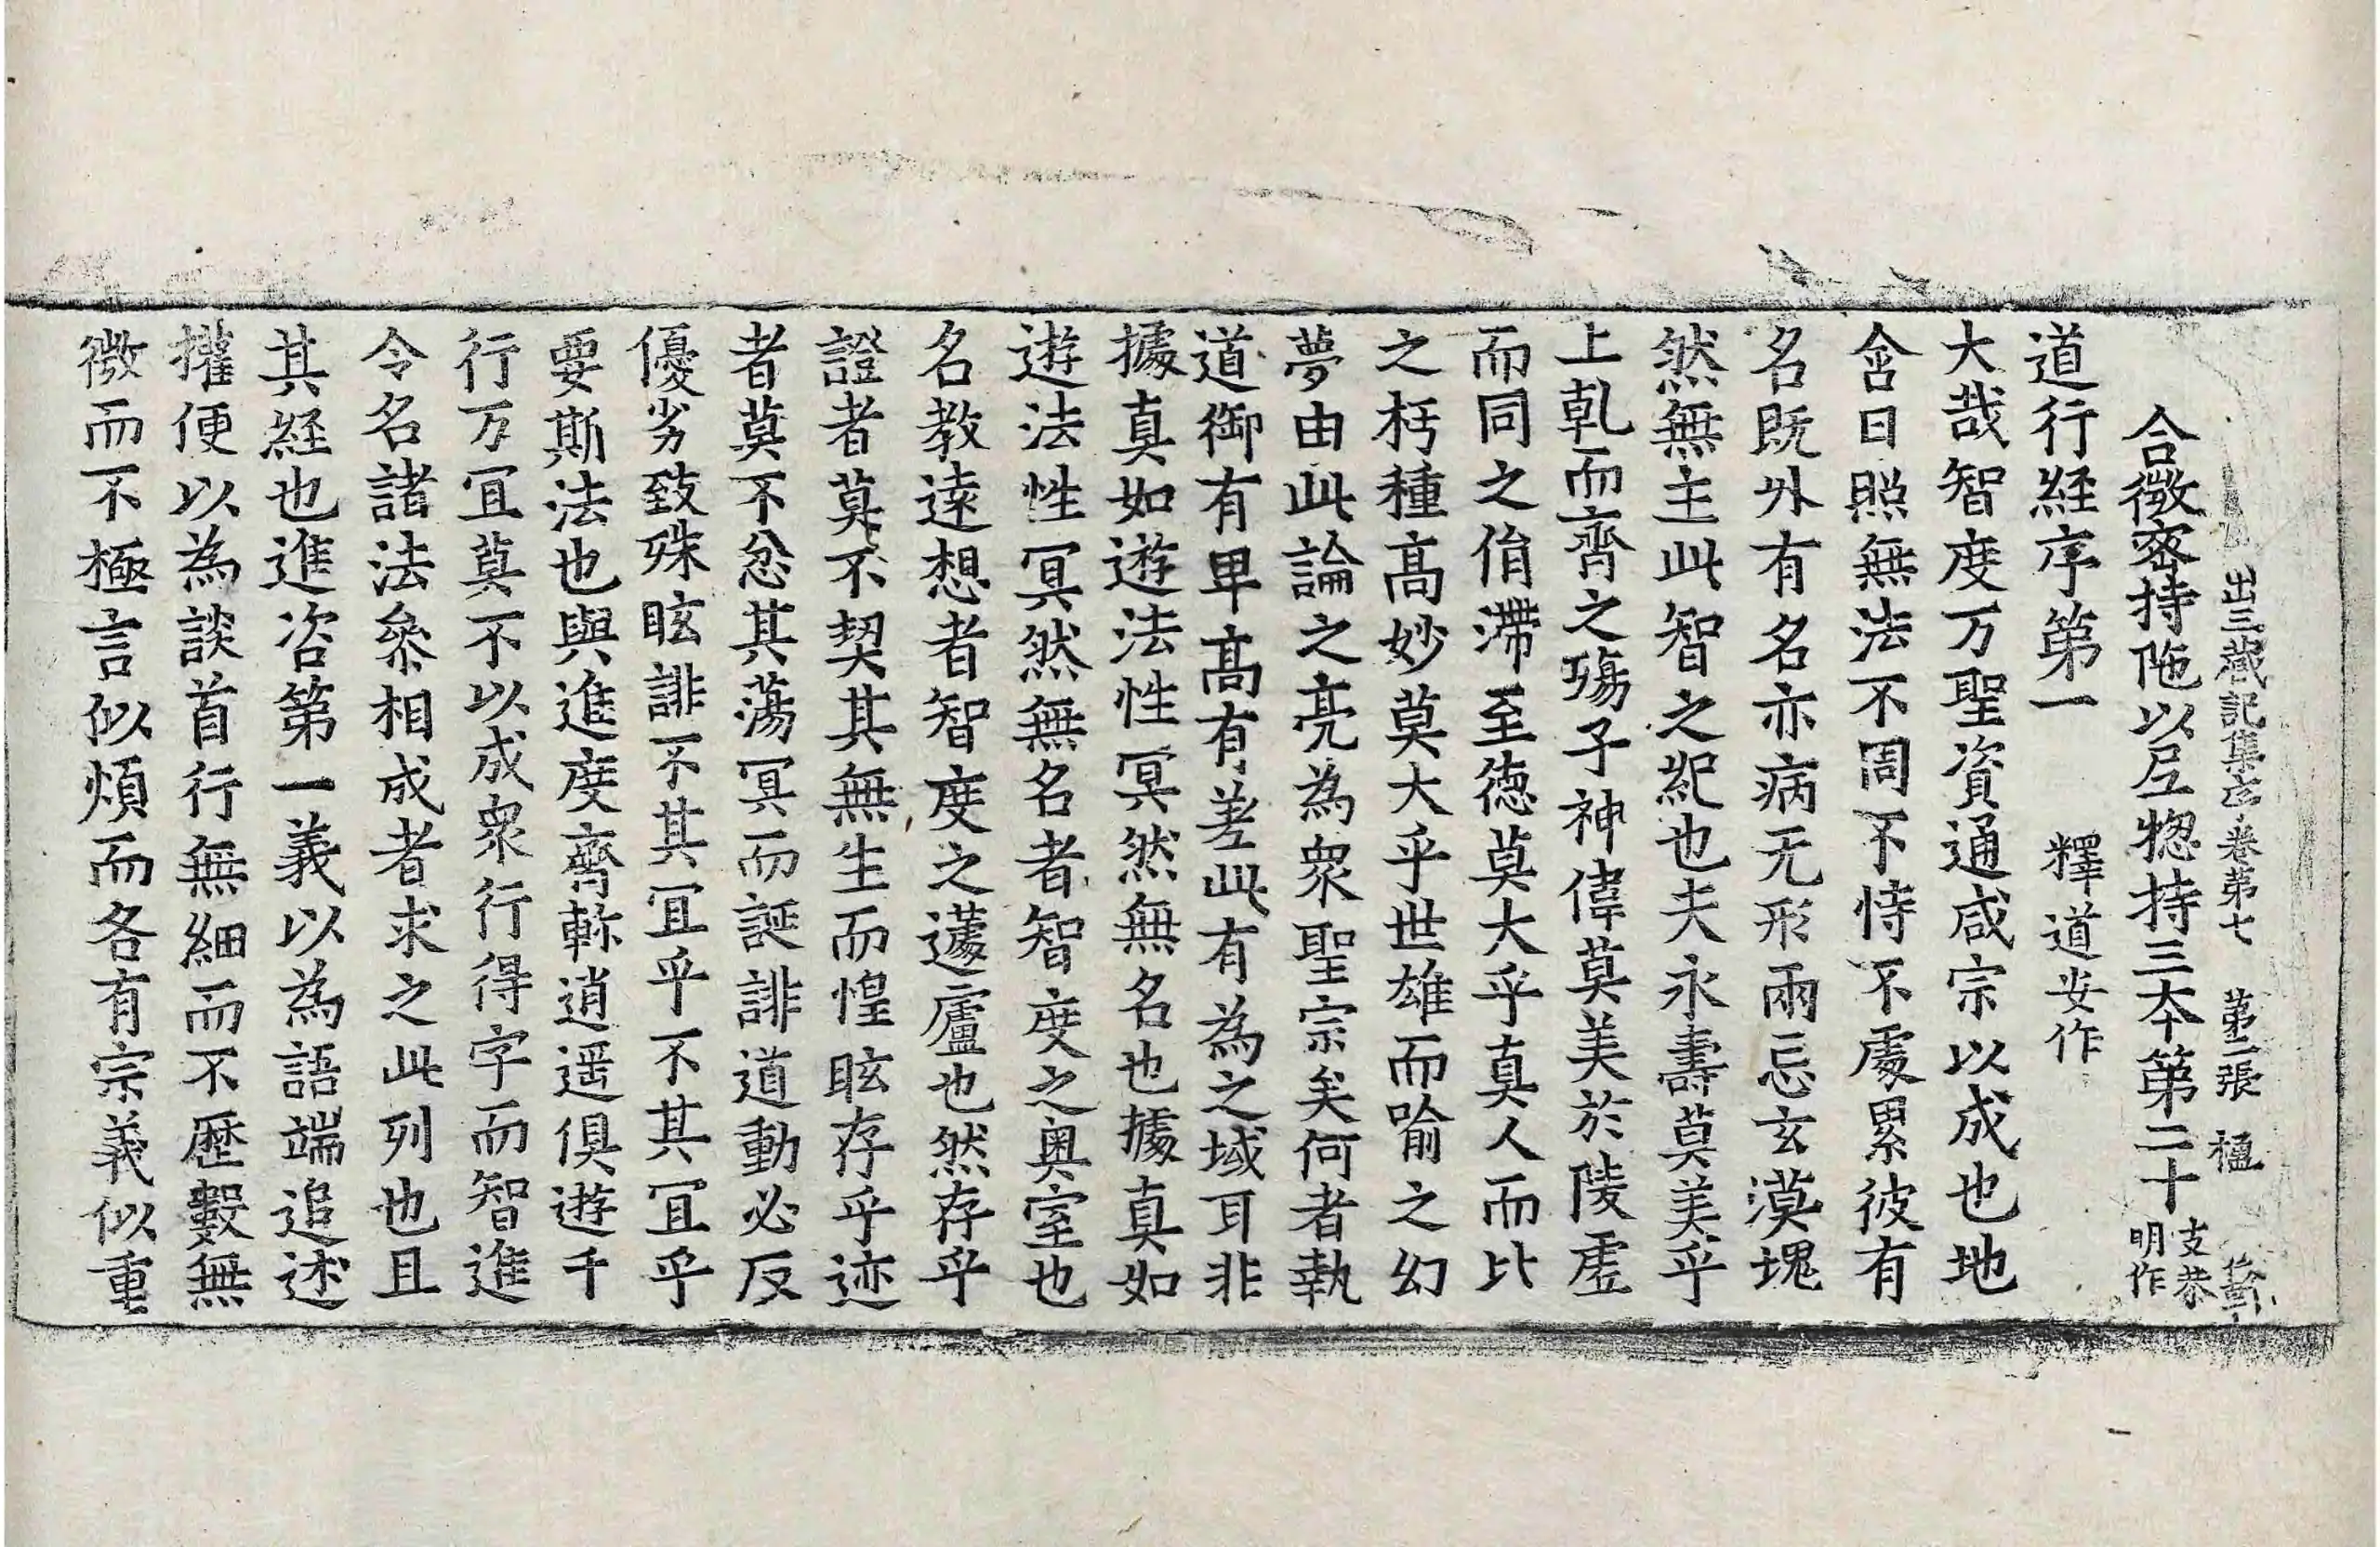 出三藏記集序卷第七 第二張 楹
合微密持陁以尼揔持三本第二十 支恭明作
道行經序第一 釋道安作
大哉智度万聖資通咸宗以成也地
含日照無法不周不恃不處累彼有
名既外有名亦病无形兩忘玄漠塊
然無主此智之紀也夫永壽莫美乎
上乹而齊之殤子神偉莫美於陵虛
而同之㳙滯至德莫大乎真人而比
之朽種高妙莫大乎世雄而喻之幻
夢由此論之亮為衆聖宗矣何者執
道御有卑高有差此有為之域耳非
據真如遊法性冥然無名也據真如
遊法性冥然無名者智度之奧室也
名教遠想者智度之蘧廬也然存乎
證者莫不契其無生而惶眩存乎迹
者莫不忿其蕩冥而誕誹道動必反
優劣致殊眩誹不其冝乎不其冝乎
要斯法也與進度齊軫逍遥俱遊千
行万冝莫不以成衆行行得字而智進
令名諸法叅相成者求之此列也且
其經也進咨第一義以為語端追述
權便以為談首行無細而不歷數無
微而不極言似煩而各有宗義似重